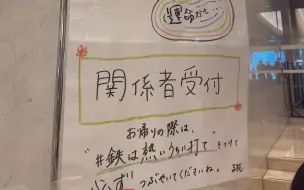 運命かも…
関係者受付
お帰りの際は、
"#鉄は熱いうちに打て" をつけて
必ず つぶやいてくださいね。